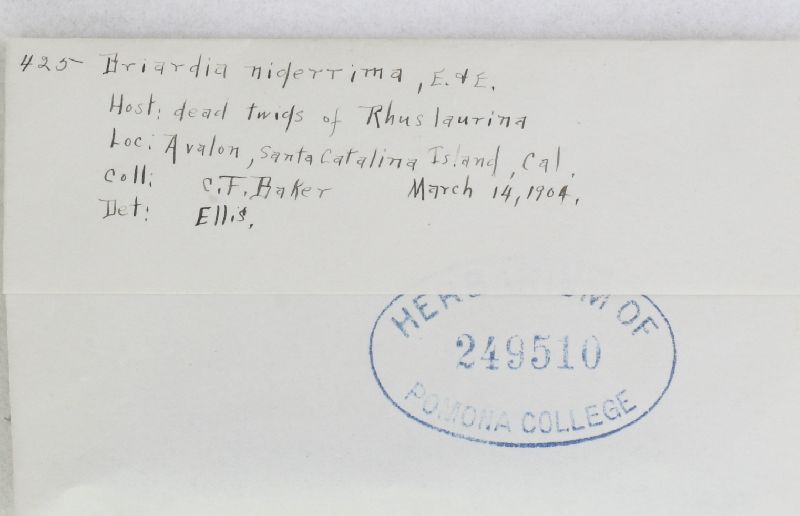 425- Briardia nigerrima, E. & E.
Host: dead twigs of Rhus laurina
Loc: Avalon, Santa Catalina Island, Cal.
Coll: C.F. Baker March 14, 1904.
Det: Ellis.
HERBARIUM OF
249510
POMONA COLLEGE